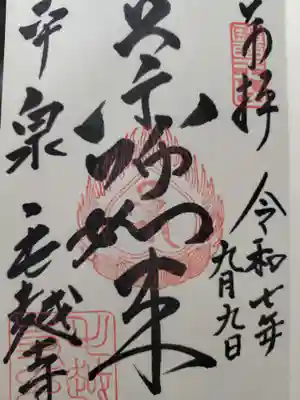 奉拝
令和七年
九月九日
薬師如来
平泉
毛越寺